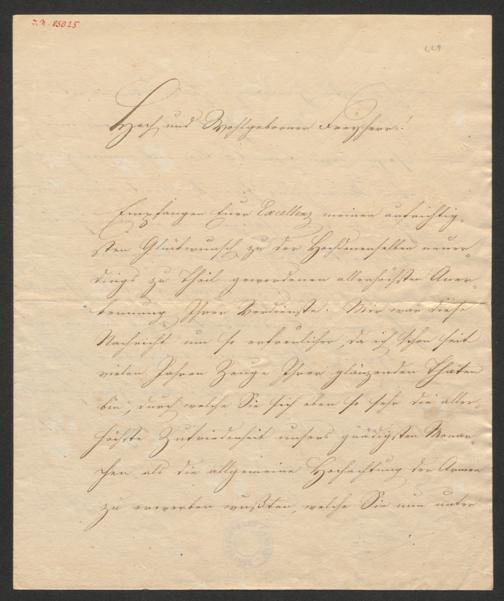 I.N. 85825
Hoch und Wohlgeborner Freyherr!
Empfangen Euer Excellenz meinen aufrichtig-
sten Glückwunsch zu der Hochdenenselben neuer-
dings zu Theil gewordenen allerhöchsten Aner-
kennung Ihrer Verdienste. Mir war diese
Nachricht um so erfreulicher, da ich schon seit
vielen Jahren Zeuge Ihrer glänzenden Thaten
bin, durch welche Sie sich eben so sehr die aller-
höchste Zufriedenheit unsers gnädigsten Monar-
chen als die allgemeine Hochachtung der Armee
zu erwerben wußten, welche Sie nun unter